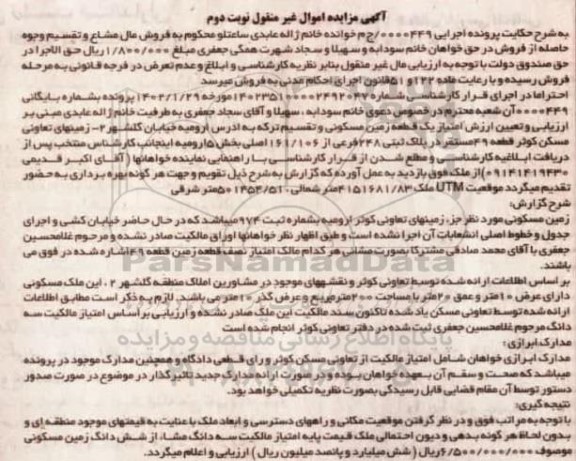 آگهی مزایده اموال غیر منقول نوبت دوم
به شرح حکایت پرونده اجرایی ۰۰۰۰۴۴۹/ج‌م خوانده خانم ژاله عابدی ساعتلو محکوم به فروش مال مشاع و تقسیم وجوه
حاصله از فروش در حق خواهان خانم سودابه و سهیلا و سجاد شهرت همگی جعفری مبلغ ۱/۸۰۰/۰۰۰ ریال حق الاجرا در
حق صندوق دولت با توجه به ارزیابی مال غیر منقول بنابر نظریه کارشناسی و ابلاغ و عدم تعرض در فرجه قانونی به مرحله
فروش رسیده و با رعایت ماده ۱۲۲ و ۵۱ قانون اجرای احکام مدنی به فروش میرسد
احتراما در اجرای قرار کارشناسی شماره مورخه ۱۴۰۳/۱/۲۹ پرونده بشماره بایگانی
۰۰۰۰۴۴۹ آن شعبه محترم در خصوص دعوی خانم سودابه ، سهیلا و آقای سجاد جعفری به طرفیت خانم ژاله عابدی مبنی بر
ارزیابی و تعیین ارزش امتیاز یک قطعه زمین مسکونی و تقسیم ترکه به ادرس ارومیه خیابان گلشهر ۲- زمینهای تعاونی
مسکن کوثر قطعه ۴۹ مستقر در پلاک ثبتی ۲۴۸ فرعی از ۱۶۱/۱۰۶ اصلی بخش ۵ ارومیه اینجانب کارشناس منتخب پس از
دریافت ابلاغیه کارشناسی و مطلع شدن از قرار کارشناسی با راهنمایی نماینده خواهانها ( آقای اکبر قدیمی
۰۹۱۴۱۴۱۹۴۳۰) از ملک فوق بازدید به عمل آورده که گزارش به شرح ذیل تقویم و جهت هر گونه بهره برداری به حضور
تقدیم میگردد موقعیت UTM ملک ۴۱۵۱۶۸۱/۸۳ متر شمالی ، ۵۰۱۴۵۴/۵۱ متر شرقی
شرح گزارش:
زمین مسکونی مورد نظر جزء زمینهای تعاونی کوثر ارومیه بشماره ثبت ۹۷۴ میباشد که در حال حاضر خیابان کشی و اجرای
جدول و خطوط اصلی انشعابات آن اجرا نشده است و طبق اظهار نظر خواهانها اوراق مالکیت صادر نشده و مرحوم غلامحسین
جعفری با آقای محمد صادقی مشترکا بصورت مشاعی هر کدام مالک امتیاز نصف قطعه زمین قطعه ۴۹ اشاره شده در فوق می
باشند.
بر اساس اطلاعات ارائه شده توسط تعاونی کوثر و نقشههای موجود در مشاورین املاک منطقه گلشهر ۲ ، این ملک مسکونی
دارای عرض ۱۰متر و عمق ۲۰متر با مساحت ۲۰۰مترمربع و عرض گذر ۱۰متر می باشد. لازم به ذکر است مطابق اطلاعات
ارائه شده توسط تعاونی مسکن یاد شده تاکنون سند مالکیت این ملک صادر نشده و ارزیابی بر اساس امتیاز مالکیت سه
دانگ مرحوم غلامحسین جعفری ثبت شده در دفتر تعاونی کوثر انجام شده است
مدارک ابرازی :
مدارک ابرازی خواهان شامل امتیاز مالکیت از تعاونی مسکن کوثر و رای قطعی دادگاه و همچنین مدارک موجود در پرونده
میباشد که صحت و سقم آن بعهده خواهان بوده و در صورت ارائه مدارک جدید تاثیرگذار در موضوع در صورت صدور
دستور توسط آن مقام قضایی قابل رسیدگی بصورت نظریه تکمیلی خواهد بود.
نتیجه گیری:
با توجه به مراتب فوق و در نظر گرفتن موقعیت مکانی و راههای دسترسی و ابعاد ملک با عنایت به قیمتهای موجود منطقه ای و
بدون لحاظ هر گونه بدهی و دیون احتمالی ملک قیمت پایه امتیاز مالکیت سه دانگ مشاء از شش دانگ زمین مسکونی
موصوف ۶/۵۰۰/۰۰۰/۰۰۰ ریال ( شش میلیارد و پانصد میلیون ریال ) ارزیابی و اعلام میگردد.
ParsNamadData
پایگاه اطلاع رسانی مناقصه و مزایده